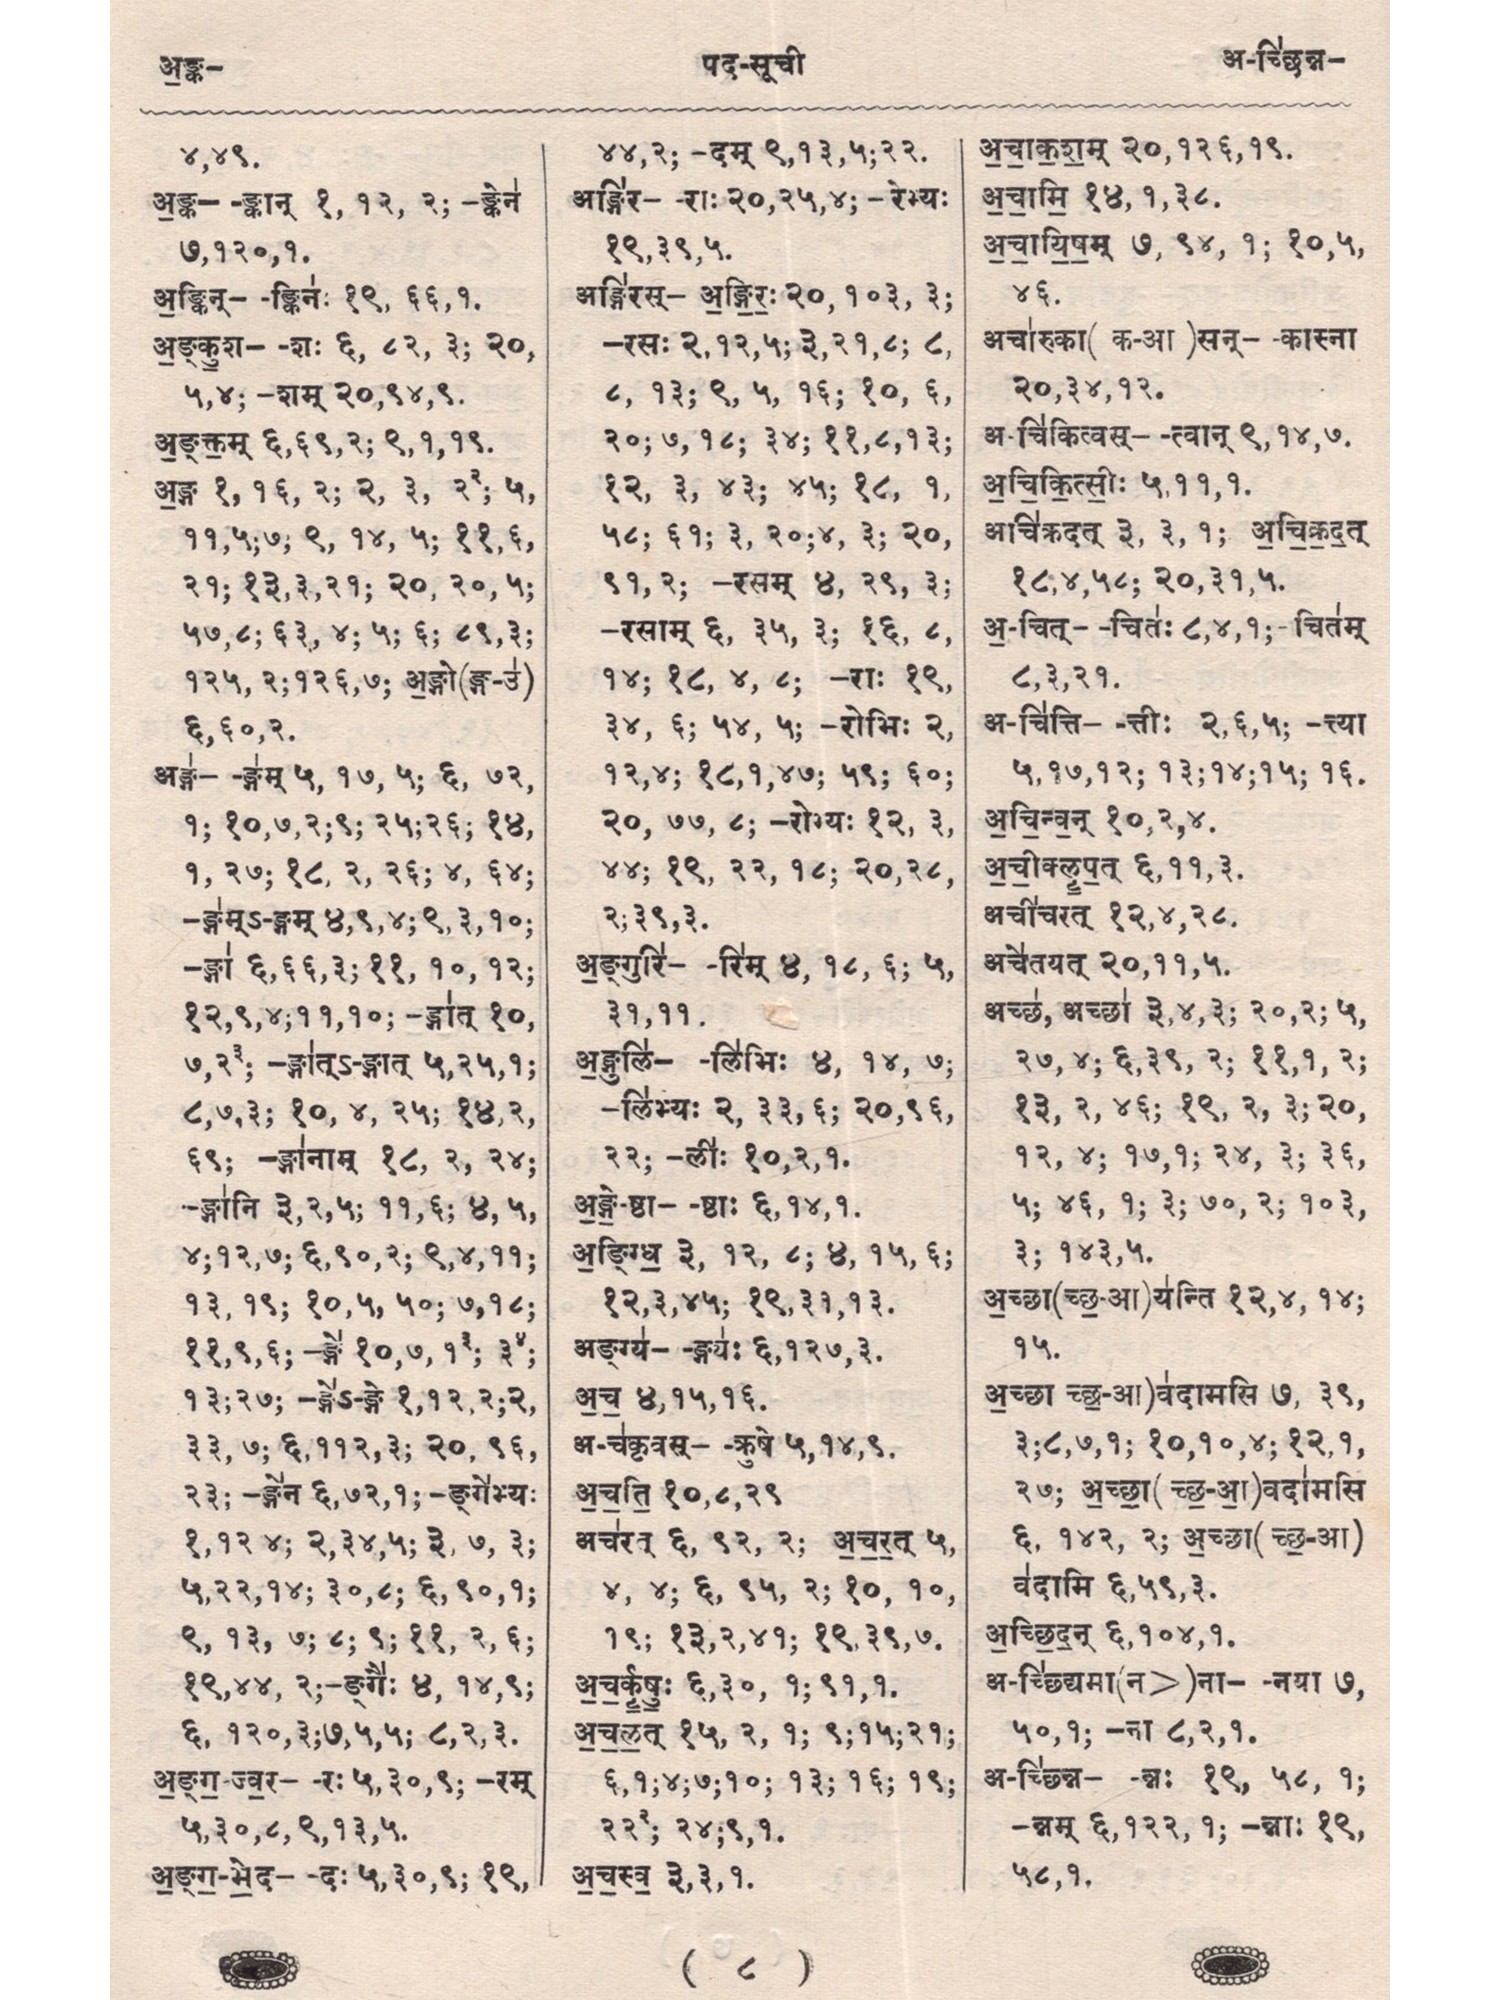 अ॒ङ्क–
पद-सूची
अ-च्छि॑न्न–
४,४९.
अ॒ङ्क– -ङ्कान् १, १२, २; –ङ्केन॑
७,१२०,१.
अ॒ङ्किन्– -ङ्किनं॑ः १९, ६६,१.
अ॒ङ्कु॒श– -शः ६, ८२, ३; २०,
५,४; –शम् २०,९४,९.
अ॒ङ्क्त॒म् ६,६९,२; ९,१,१९.
अ॒ङ्ग १, १६, २; २, ३, २^२; ५,
११,५;७; ९, १४, ५; ११,६,
२१; १३,३,२१; २०, २०, ५;
५७,८; ६३, ४; ५; ६; ८९,३;
१२५, २;१२६,७; अ॒ङ्गो(ङ्ग-उ॑)
६,६०,२.
अङ्ग॑– -ङ्ग॑म् ५, १७, ५; ६, ७२,
१; १०,७,२;९; २५;२६; १४,
१, २७; १८, २, २६; ४, ६४;
–ङ्ग॑म्ऽ-ङ्गम् ४,९,४; ९,३,१०;
–ङ्गा॑ ६,६६,३; ११, १०, १२;
१२,९,४;११,१०; –ङ्गा॑त् १०,
७,२^३; –ङ्गा॑त्ऽ-ङ्गात् ५,२५,१;
८,७,३; १०, ४, २५; १४,२,
६९; –ङ्गा॑नाम् १८, २, २४;
–ङ्गा॑नि ३,२,५; ११,६; ४, ५,
४;१२,७; ६,९०,२; ९,४,११;
१३, १९; १०,५, ५०; ७,१८;
११,९,६; –ङ्गे॑ १०,७, १^३; ३^४;
१३;२७; –ङ्गे॑ऽ-ङ्गे १,१२,२;२,
३३, ७; ६,११२,३; २०, ९६,
२३; –ङ्गे॑न ६,७२,१; –ङ्गे॑भ्यः
१,१२ ४; २,३४,५; ३, ७, ३;
५,२२,१४; ३०,८; ६,९०,१;
९, १३, ७; ८; ९; ११, २, ६;
१९,४४, २;–ङ्गैः॑ ४, १४,९;
६, १२०,३;७,५,५; ८,२,३.
अ॒ङ्ग॒-ज्व॒र– -रः ५,३०,९; –रम्
५,३०,८, ९,१३,५.
अ॒ङ्ग॒-भे॒द– -दः ५,३०,९; १९,
४४,२; –दम् ९,१३,५;२२.
अङ्गि॑र– -राः २०,२५,४; –रेभ्यः
१९,३९,५.
अङ्गि॑रस्– अ॒ङ्गि॒रः॒ २०, १०३, ३;
–रसः २,१२,५; ३,२१,८; ८,
८, १३; ९, ५, १६; १०, ६,
२०; ७, १८; ३४; ११,८,१३;
१२, ३, ४३; ४५; १८, १,
५८; ६१; ३, २०;४, ३; २०,
९१, २; –रसम् ४, २९, ३;
–रसाम् ६, ३५, ३; १६, ८,
१४; १८, ४, ८; –राः १९,
३४, ६; ५४, ५; –रोभिः २,
१२,४; १८,१,४७; ५९; ६०;
२०, ७७, ८; –रोभ्यः १२, ३,
४४; १९, २२, १८; २०,२८,
२;३९,३.
अ॒ङ्गुरि॑– -रि॑म् ४, १८, ६; ५,
३१,११.
अ॒ङ्गुलि॑– -लि॑भिः ४, १४, ७;
–लि॑भ्यः २, ३३, ६; २०,९६,
२२; –लीः॑ १०,२,१.
अ॒ङ्गे॒-ष्ठा– -ष्ठाः ६,१४,१.
अ॒ङ्ग्धि॒ ३, १२, ८; ४, १५, ६;
१२,३,४५; १९,३१,१३.
अङ्ग्य॑– -ङ्ग्यः॑ ६,१२७,३.
अ॒च॒ ४,१५,१६.
अ-च॑कृवस्– -क्रुषे ५,१४,९.
अ॒च॒ति॒ १०,८,२९
अच॑रत् ६, ९२, २; अ॒च॒र॒त् ५,
४, ४; ६, ९५, २; १०, १०,
१९; १३,२,४१; १९,३९,७.
अ॒च॒र्कृ॒षुः॒ ६,३०, १; ९१,१.
अ॒च॒ल॒त् १५, २, १; ९;१५;२१;
६,१;४;७;१०; १३; १६; १९;
२२^२; २४;९,१.
अ॒च॒स्व॒ ३,३,१.
अ॒चा॒क॒श॒म् २०,१२६,१९.
अ॒चा॒मि॒ १४,१,३८.
अ॒चा॒यि॒ष॒म् ७, ९४, १; १०,५,
४६.
अचा॑रुका( क-आ )सन्– -कास्ना
२०,३४,१२.
अ-चि॑कित्वस्– -त्वान् ९,१४,७.
अ॒चि॒कि॒त्सीः॒ ५,११,१.
अचि॑क्रदत् ३, ३, १; अ॒चि॒क्र॒द॒त्
१८,४,५८; २०,३१,५.
अ॒-चित्– -चितः॑ ८,४,१; -चित॑म्
८,३,२१.
अ-चि॑त्ति– -त्तीः २,६,५; –त्त्या
५,१७,१२; १३;१४;१५; १६.
अ॒चि॒न्व॒न् १०,२,४.
अ॒ची॒क्लृ॒प॒त् ६,११,३.
अची॑चरत् १२,४,२८.
अचे॑तयत् २०,११,५.
अच्छ॑, अच्छा॑ ३,४,३; २०,२; ५,
२७, ४; ६,३९, २; ११,१, २;
१३, २, ४६; १९, २, ३; २०,
१२, ४; १७,१; २४, ३; ३६,
५; ४६, १; ३; ७०, २; १०३,
३; १४३,५.
अ॒च्छा(च्छ॒-आ)य॑न्ति १२,४, १४;
१५.
अ॒च्छा च्छ॒-आ)व॑दामसि ७, ३९,
३;८,७,१; १०,१०,४; १२,१,
२७; अ॒च्छा॒( च्छ॒-आ॒)वदा॑मसि
६, १४२, २; अ॒च्छा( च्छ॒-आ)
व॑दामि ६,५९,३.
अ॒च्छि॒द॒न् ६,१०४,१.
अ-च्छि॑द्यमा(न>)ना– -नया ७,
५०,१; –ना ८,२,१.
अ-च्छि॑न्न– -न्नः १९, ५८, १;
–न्नम् ६,१२२, १; –न्नाः १९,
५८,१.
( ८ )